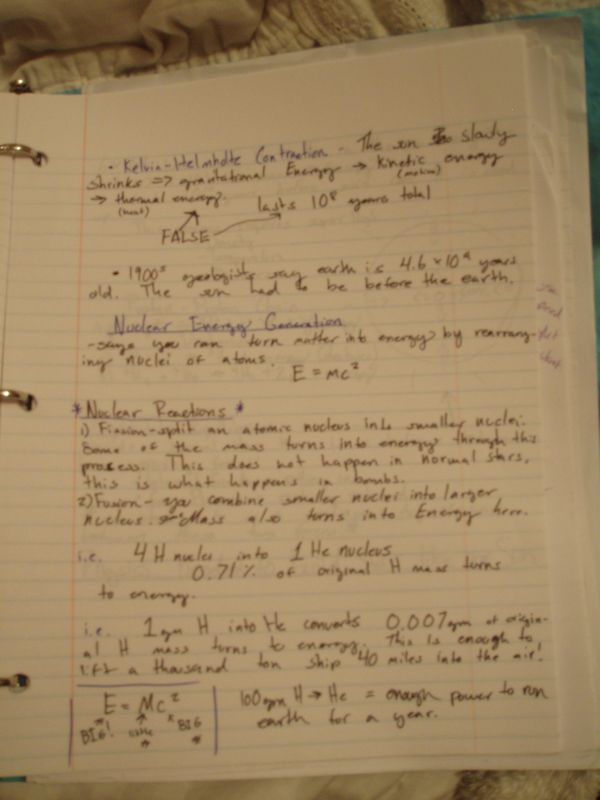 • Kelvin-Helmholtz Contraction - The sun slowly
shrinks => gravitational Energy → kinetic energy
(motion)
→ thermal energy.
(heat)
lasts 10⁸ years total
FALSE
• 1900s geologists say earth is 4.6 × 10⁹ years
old. The sun had to be before the earth.
Nuclear Energy Generation
-says you can turn matter into energy by rearrang-
ing nuclei of atoms.
E = mc²
*Nuclear Reactions*
1) Fission - split an atomic nucleus into smaller nuclei.
Some of the mass turns into energy through this
process. This does not happen in normal stars,
this is what happens in bombs.
2) Fusion - you combine smaller nuclei into larger
nucleus. Mass also turns into Energy here.
i.e. 4 H nuclei into 1 He nucleus
0.71% of original H mass turns
to energy.
i.e. 1 gm H into He converts 0.007 gm of origin-
al H mass turns to energy. This is enough to
lift a thousand ton ship 40 miles into the air!
E = Mc²
BIG! little BIG
100 gm H → He = enough power to run
earth for a year.